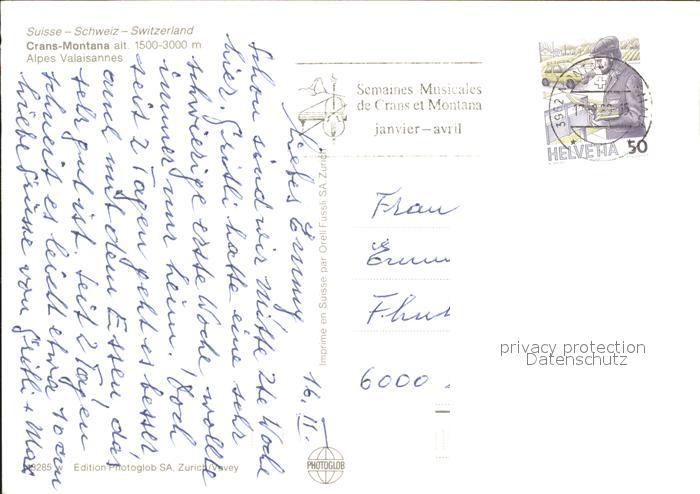 Suisse – Schweiz – Switzerland
Crans-Montana alt. 1500-3000 m
Alpes Valaisannes
Semaines Musicales
de Crans et Montana
janvier – avril
3962
HELVETIA 50
Liebes Emmy 16. II.
Schon sind wir Mitte 2te Woche
hier. Gritli hatte eine sehr
schwierige erste Woche wollte
immer nur heim. Doch
seit 2 Tagen geht es besser
auch mit dem Essen, das
sehr gut ist. Seit 2 Tagen
schneit es leicht etwa 10 cm
Liebe Grüsse von Gritli + Max
Imprimé en Suisse par Orell Füssli SA Zurich
Frau
6000
privacy protection
Datenschutz
Edition Photoglob SA, Zurich/Vevey
PHOTOGLOB